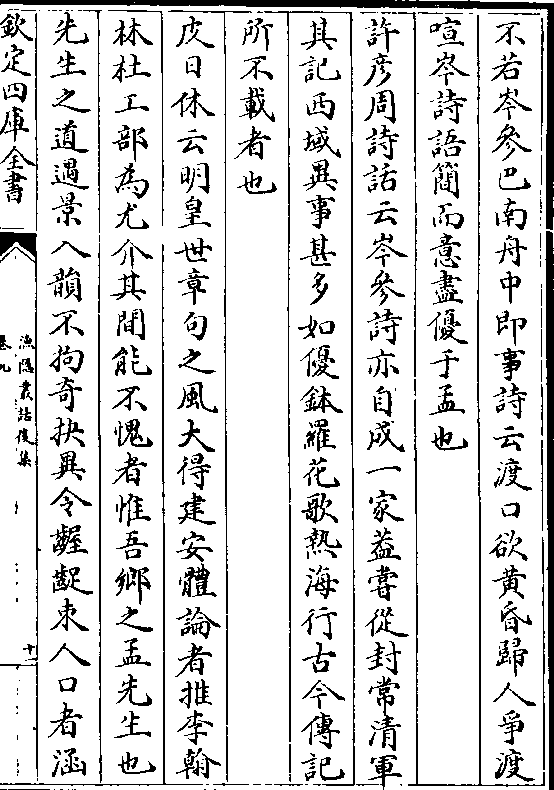 不若岑參巴南舟中即事詩云渡口欲黄昏歸人爭渡
喧岑詩語簡而意盡優于孟也
許彦周詩話云岑參詩亦自成一家葢嘗從封常清軍
其記西域異事甚多如優鉢羅花歌熱海行古今傳記
所不載者也
皮日休云明皇世章句之風大得建安體論者推李翰
林杜工部為尤介其間能不愧者惟吾鄉之孟先生也
先生之道遇景入韻不拘竒抉異令齷齪束人口者涵
欽定四庫全書
漁隠叢話後集
卷九
十一